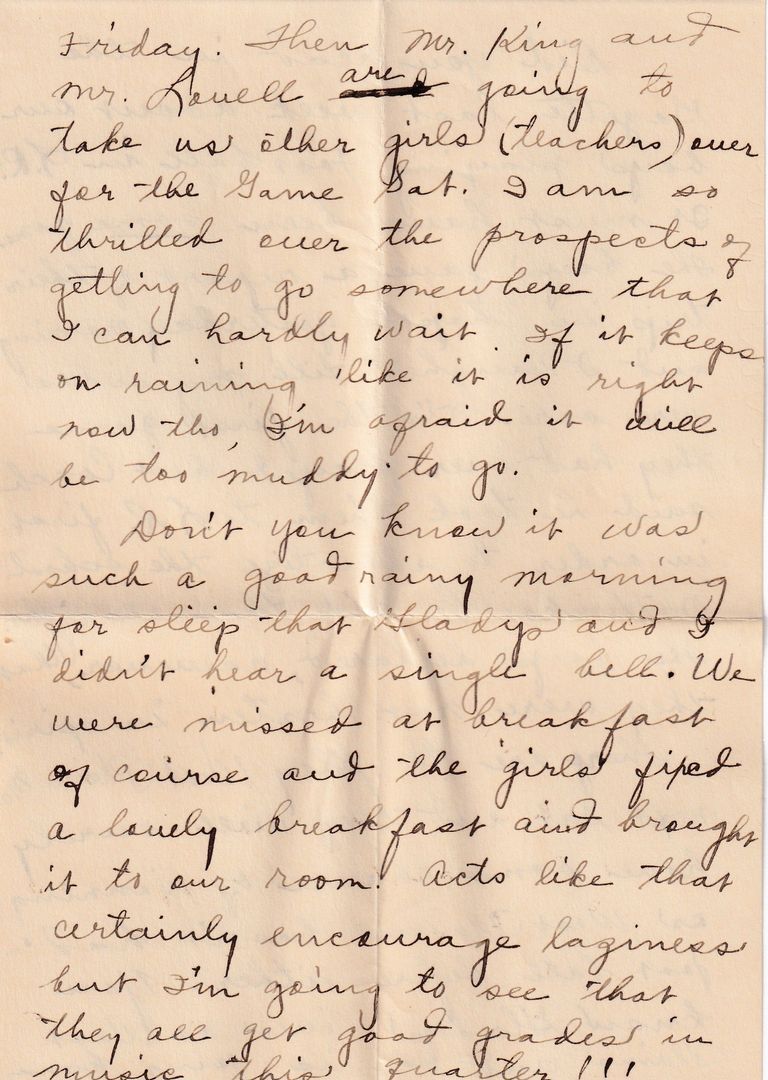 Friday. Then Mr. King and
Mr. Lovell are going to
take us other girls (teachers) over
for the Game Sat. I am so
thrilled over the prospects of
getting to go somewhere that
I can hardly wait. If it keeps
on raining like it is right
now tho, I'm afraid it will
be too muddy to go.
Don't you know it was
such a good rainy morning
for sleep that Gladys and I
didn't hear a single bell. We
were missed at breakfast
of course and the girls fixed
a lovely breakfast and brought
it to our room. Acts like that
certainly encourage laziness
but I'm going to see that
they all get good grades in
music this quarter!!!